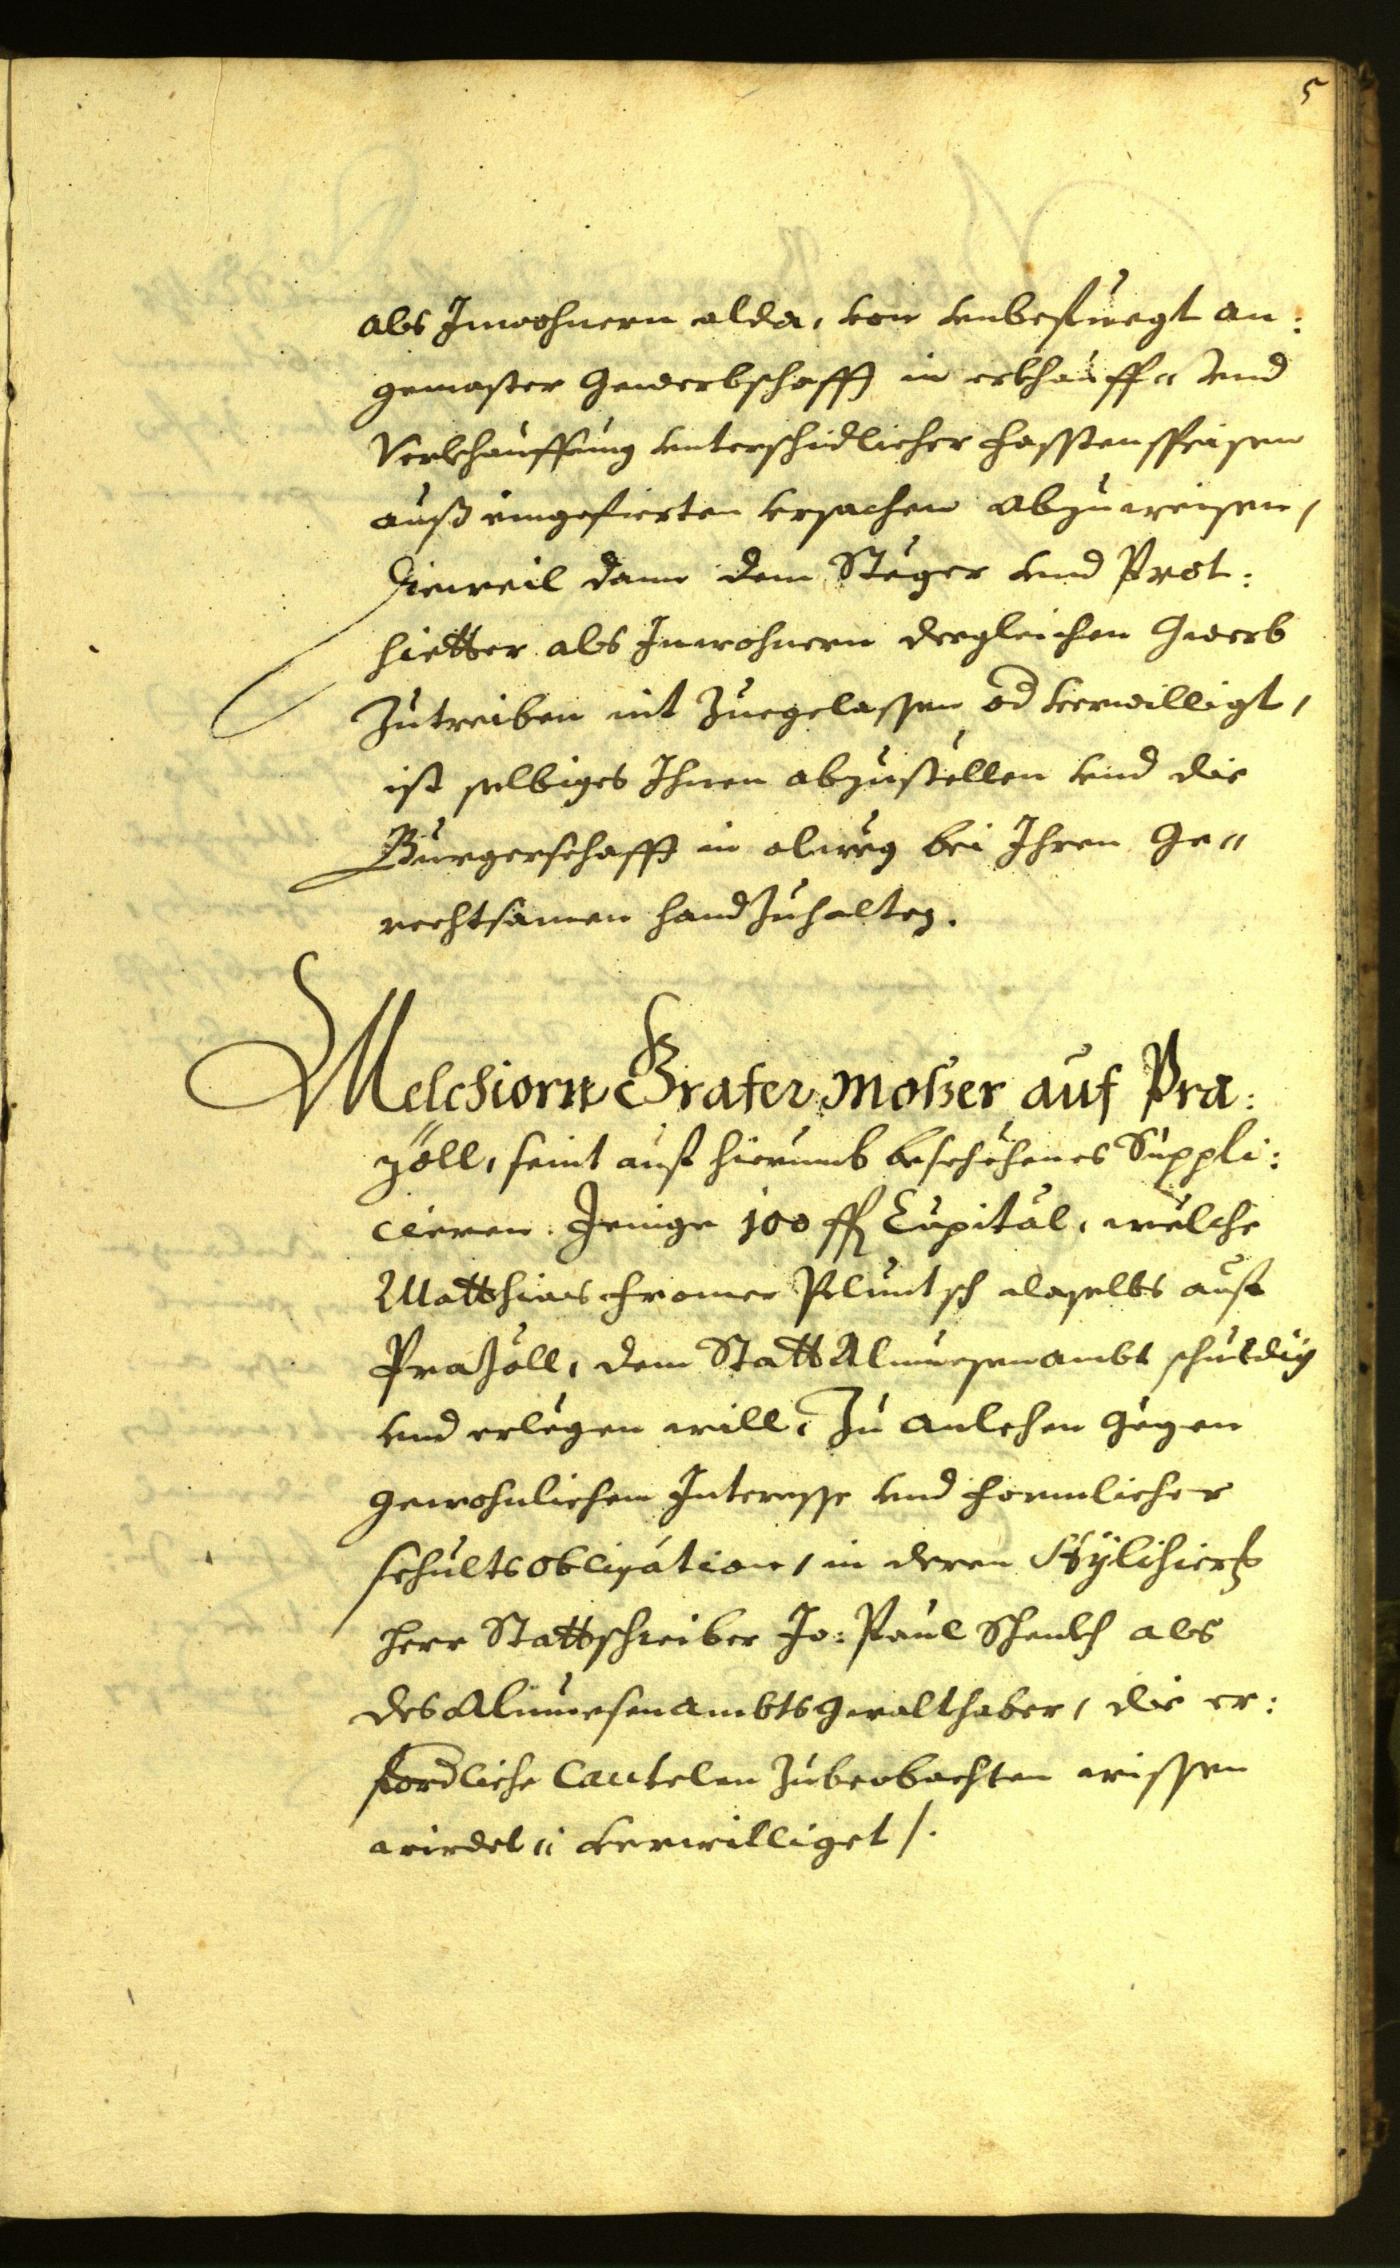 5
als Inwohnern alda, von vnbefuegt an:
gemaster Gewerbschafft in erkhauff „ vnd
Verkhauffung vnterschidlicher Fasstenspeisen
auß eingefierten vrsachen abzuweisen,
Dieweil dann dem Steger vnd Prot:
hietter als Inwohnern dergleichen Gwerb
Zutreiben nit Zuegelassen od verwilligt,
ist selbiges Ihnen abzustellen vnd die
Burgerschafft in alweg bei Ihren Ge„
rechtsamen hand Zuhalten.
Melchiorn Grafer Moßer auf Pra:
zöll, seint auf hierumb beschehenes Suppli:
cieren Jenige 100 fl Capital, welche
Matthias Fromer Pluntsch daselbs auf
PraZöll, dem Statt Almuesenambt schuldig
vnd erlegen will, Zu Anlehen gegen
gewohnlichem Interesse vnd formlicher
schultsobligation, in deren Stylisiert
Herr Stattschreiber Jo: Paul Schenkh als
des Almuesenambts Gwalthaber, die er:
fordliche Cautelen Zubeobachten wissen
wirdet „ verwilliget /.